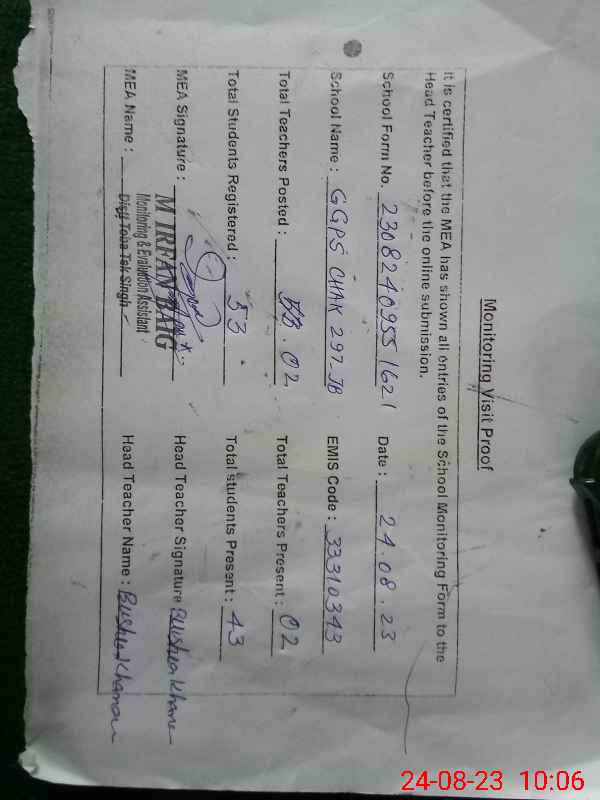 Monitoring Visit Proof
It is certified that the MEA has shown all entries of the School Monitoring Form to the
Head Teacher before the online submission.
School Form No. 23082409551621 Date : 24.08.23
School Name : GGPS CHAK 297-JB EMIS Code : 33310343
Total Teachers Posted : 02 Total Teachers Present : 02
Total Students Registered : 53 Total students Present : 43
MEA Signature : Head Teacher Signature Bushra Khanam
M IRFAN BAIG
Monitoring & Evaluation Assistant
MEA Name : Distt Toba Tek Singh Head Teacher Name : Bushra Khanam
24-08-23 10:06